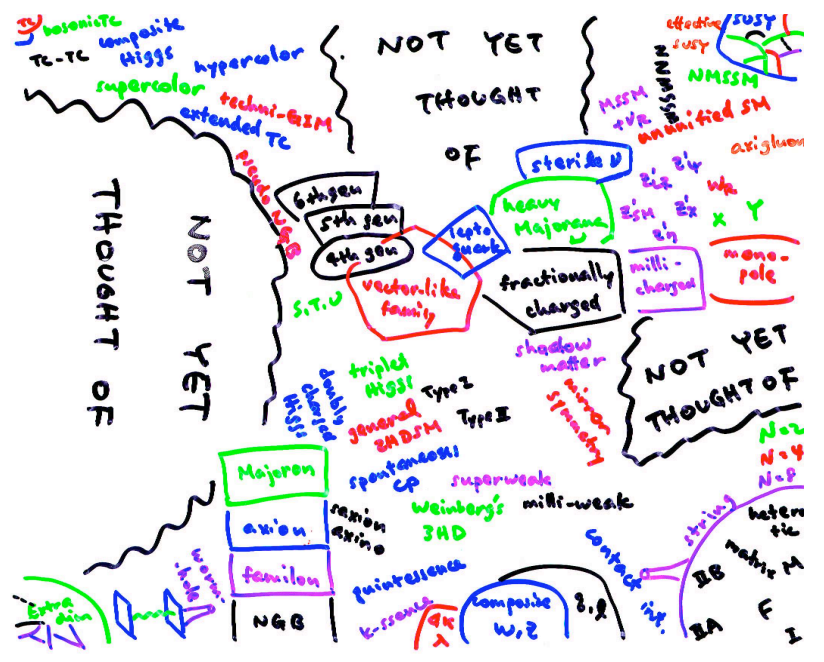 TC
bosonic TC
TC-TC
composite
Higgs
hypercolor
supercolor
techni-GIM
extended TC
pseudo NGB
NOT YET
THOUGHT
OF
effective
SUSY
SUSY
NMSSM
NNMSSM
MSSM
+νR
ununified SM
axigluon
NOT YET
THOUGHT OF
6th gen
5th gen
4th gen
vector-like
family
lepto
quark
sterile ν
heavy
Majorana
ν
fractionally
charged
milli-
charged
mono-
pole
Z'LR
Z'ψ
WR
Z'SM
Z'χ
Z'η
X
Y
S,T,U
shadow
matter
mirror
symmetry
NOT YET
THOUGHT OF
triplet
Higgs
doubly
charged
Higgs
Type I
Type II
general
2HDSM
spontaneous
CP
superweak
Weinberg's
3HD
milli-weak
Majoron
axion
saxion
axino
familon
NGB
quintessence
k-ssence
composite
W,Z
q,l
contact
int.
string
N=2
N=4
N=8
hetero
tic
matrix
M
IIB
IIA
F
I
Extra
dim
worm
hole